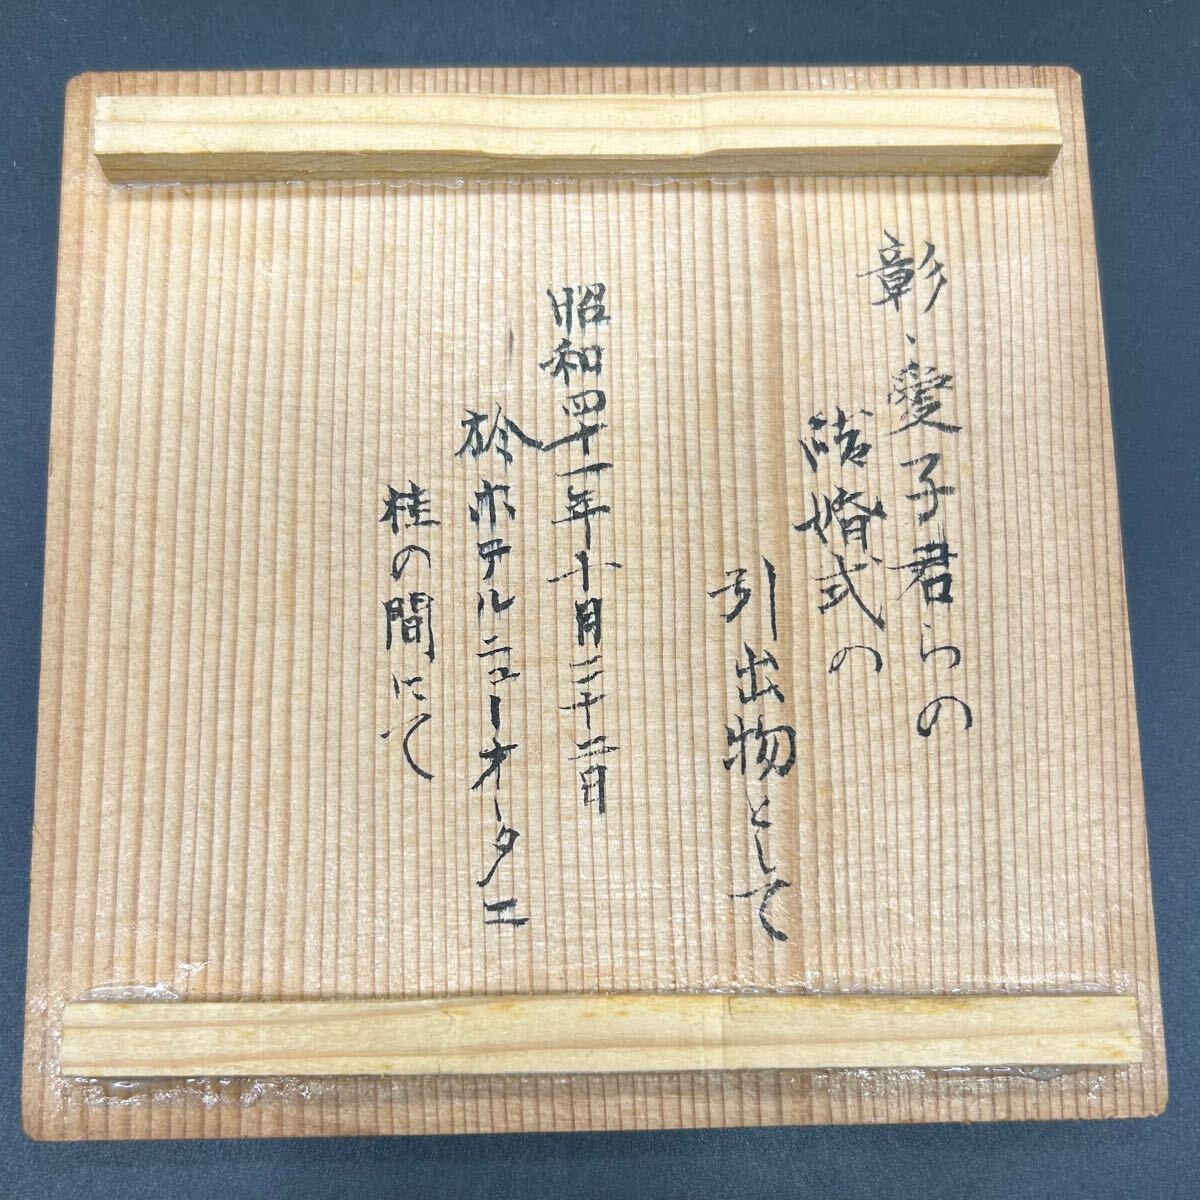 彰、愛子君らの
結婚式の
引出物として
昭和四十一年十月二十二日
於ホテルニューオータニ
桂の間にて